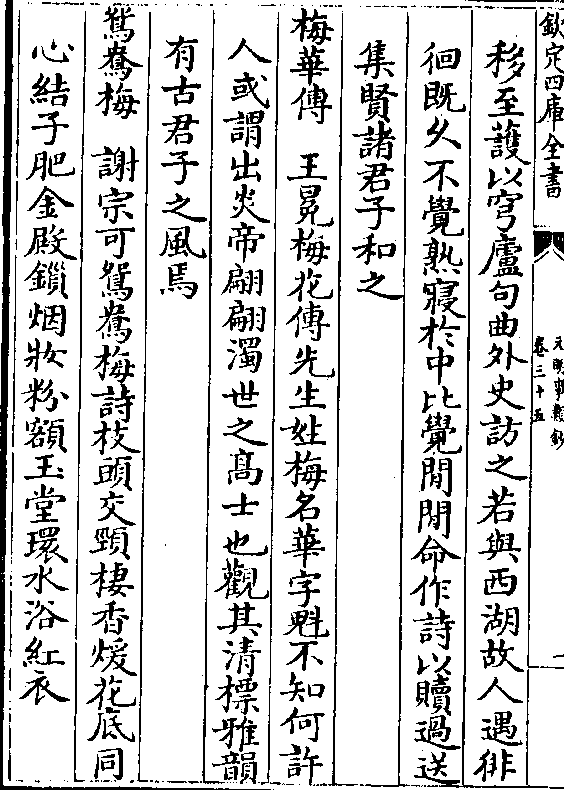 欽定四庫全書
元明事類鈔
卷三十五
一
移至䕶以穹廬句曲外史訪之若與西湖故人遇徘
徊既久不覺熟寢於中比覺閒閒命作詩以贖過送
集賢諸君子和之
梅華傳　王冕梅花傳先生姓梅名華字魁不知何許
人或謂出炎帝翩翩濁世之髙士也觀其清標雅韻
有古君子之風焉
鴛鴦梅　謝宗可鴛鴦梅詩枝頭交頸棲香煖花底同
心結子肥金殿鎖烟妝粉額玉堂環水浴紅衣